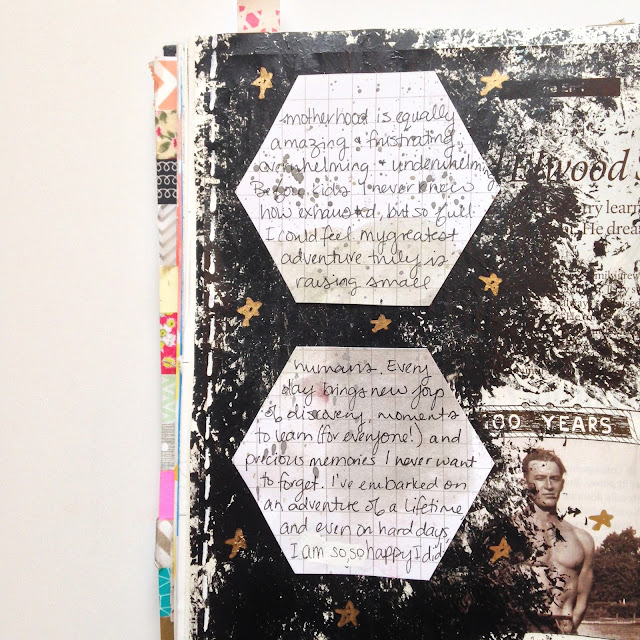 motherhood is equally
amazing & frustrating,
overwhelming & underwhelming.
Before kids I never knew
how exhausted, but so full
I could feel. My greatest
adventure truly is
raising small
humans. Every
day brings new joys
of discovery, moments
to learn (for everyone!) and
precious memories I never want
to forget. I've embarked on
an adventure of a lifetime
and even on hard days
I am so so happy I did.
Elwood
rry learn
He dream
100 YEARS